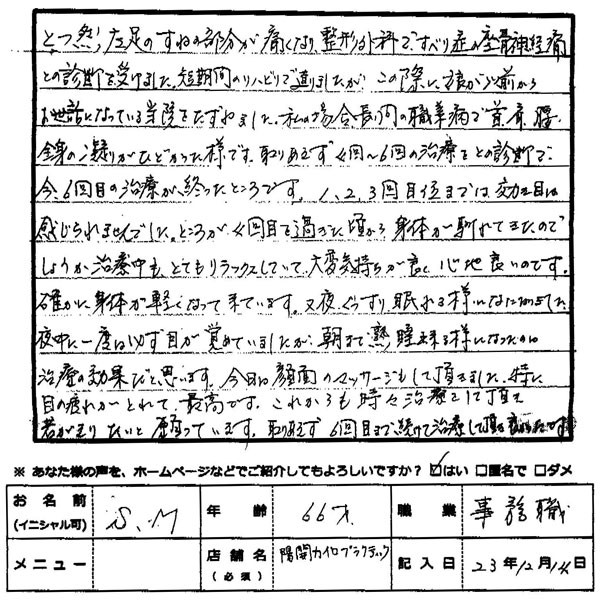 とつ然、左足のすねの部分が痛くなり、整形外科ですべり症から坐骨神経痛
との診断を受けました。短期間のリハビリで通りましたが、この際に娘が以前から
お世話になっている当院をたずねました。私の場合、長い間の職業病で首、肩、腰、
全身の凝りがひどかった様です。取りあえず4回〜6回の治療をとの診断で、
今、6回目の治療が終ったところです。1、2、3回目位までは効き目は
感じられませんでした。ところが、4回目を過ぎた頃から身体が馴れてきたので
しょうか治療中も、とてもリラックスしていて、大変気持ちが良く心地良いのです。
確かに身体が軽くなって来ています。又夜、ぐっすり眠れる様になりました。
夜中に一度は必ず目が覚めていましたが、朝まで熟睡出来る様になったのは
治療の効果だと思います。今日は顔面のマッサージもして頂きました。特に
目の疲れがとれて、最高です。これからも時々治療して頂き
若がえりたいと願っています。取りあえず6回目まで続けて治療して頂き
※ あなた様の声を、ホームページなどでご紹介してもよろしいですか? ☑はい □匿名で □ダメ
お名前 (イニシャル可) S.M 年齢 66才 職業 事務職
メニュー 店舗名 (必須) 陽開カイロプラクティック 記入日 23年12月14日